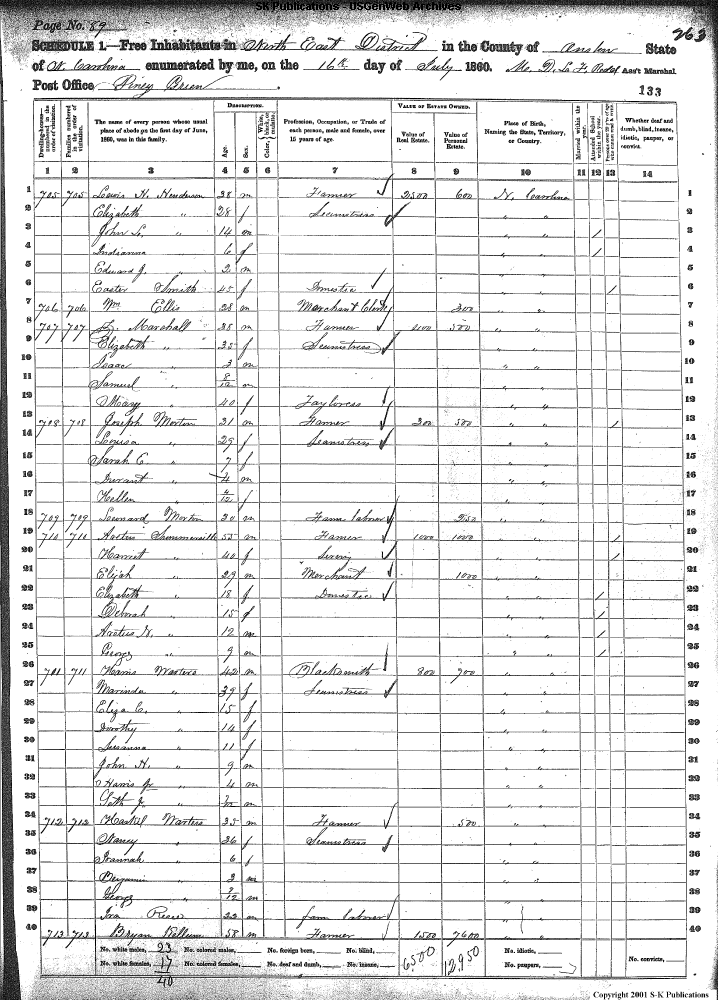 SK Publications - USGenWeb Archives
Page No. 89
263
SCHEDULE 1.—Free Inhabitants in North East District in the County of Anson State
of N. Carolina enumerated by me, on the 16th day of July 1860. Ass't Marshal
Post Office
133
DESCRIPTION. VALUE OF ESTATE OWNED.
Dwelling-houses—numbered in the order of visitation. Families numbered in the order of visitation. The name of every person whose usual place of abode on the first day of June, 1860, was in this family. Age. Sex. Color, White, black, or mulatto. Profession, Occupation, or Trade of each person, male and female, over 15 years of age. Value of Real Estate. Value of Personal Estate. Place of Birth, Naming the State, Territory, or Country. Married within the year. Attended School within the year. Whether deaf and dumb, blind, insane, idiotic, pauper, or convict.
1 2 3 4 5 6 7 8 9 10 11 12 13 14
1 705 705 Lewis H. Henderson 38 m Farmer 2500 600 N. Carolina 1
2 Elizabeth " 28 f Seamstress " " 2
3 John L. " 14 m " " / 3
4 Indianna 6 f " " / 4
5 Edward J. 2 m " " 5
6 Easter Smith 45 f Domestic " " / 6
7 706 706 Wm Ellis 28 m Merchant Clerk 300 " " 7
8 707 707 Marshall 38 m Farmer 500 " " 8
9 Elizabeth " 35 f Seamstress " " 9
10 Isaac " 3 m " " 10
11 Samuel " 8/12 m " " 11
12 Mary " 40 f Tayloress " " 12
13 708 708 Joseph Morton 31 m Farmer 200 500 " " / 13
14 Louisa " 29 f Seamstress " " 14
15 Sarah C. " 7 f " " 15
16 Durant " 4 m " " 16
17 Hellen /12 f " 17
18 709 709 Leonard Morton 30 m Farm laborer " " 18
19 710 710 Summerville 55 m Farmer 1000 1000 " " / 19
20 Harriet " 40 f " " / 20
21 Elijah " 29 m Merchant 1000 " " 21
22 Elizabeth " 18 f Domestic " " / 22
23 Deborah " 15 f " " / 23
24 " 12 m " " / 24
25 George " 9 m " " / 25
26 701 711 Harris Warters 42 m Blacksmith 800 700 " " 26
27 Marinda " 39 f Seamstress " " 27
28 Eliza C. " 15 f " " 28
29 Dorothy " 14 f " " 29
30 Susanna " 11 f " " 30
31 John H. " 9 m " " 31
32 Harris Jr " 4 m " " 32
33 Seth J. " m " " 33
34 712 712 Haskel Warters 35 m Farmer 500 " " 34
35 Nancy " 36 f Seamstress " " 35
36 " 6 f " " 36
37 Benjamin " 3 m " " 37
38 George " /12 m " " 38
39 Ira 22 m farm laborer " " 39
40 713 713 Bryan Kellum 58 m Farmer 1500 7600 " " 40
No. white males, 23 No. colored males, No. foreign born, No. blind, 6500 12,950 No. idiotic,
No. white females, 17 No. colored females, No. deaf and dumb, No. insane, No. paupers, No. convicts,
40
Copyright 2001 S-K Publications